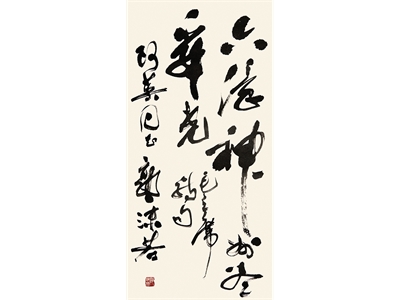 六億神州盡
舜堯
毛主席
詩句
阿英同志 郭沫若